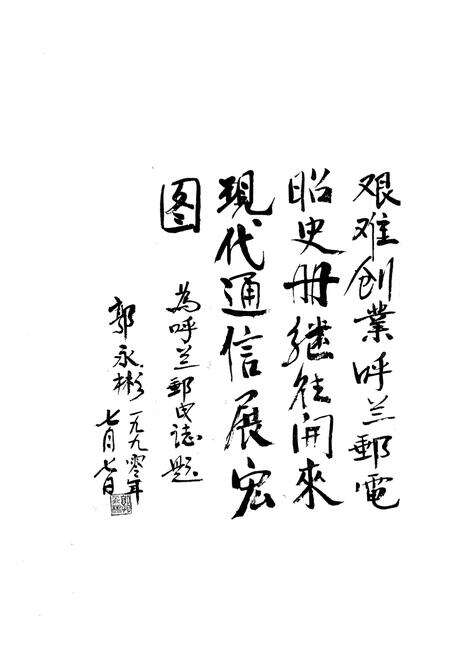 艰难创業呼兰郵電
昭史册继往開來
現代通信展宏
图
為呼兰郵电誌題
郭永彬一九九零年
七月七日